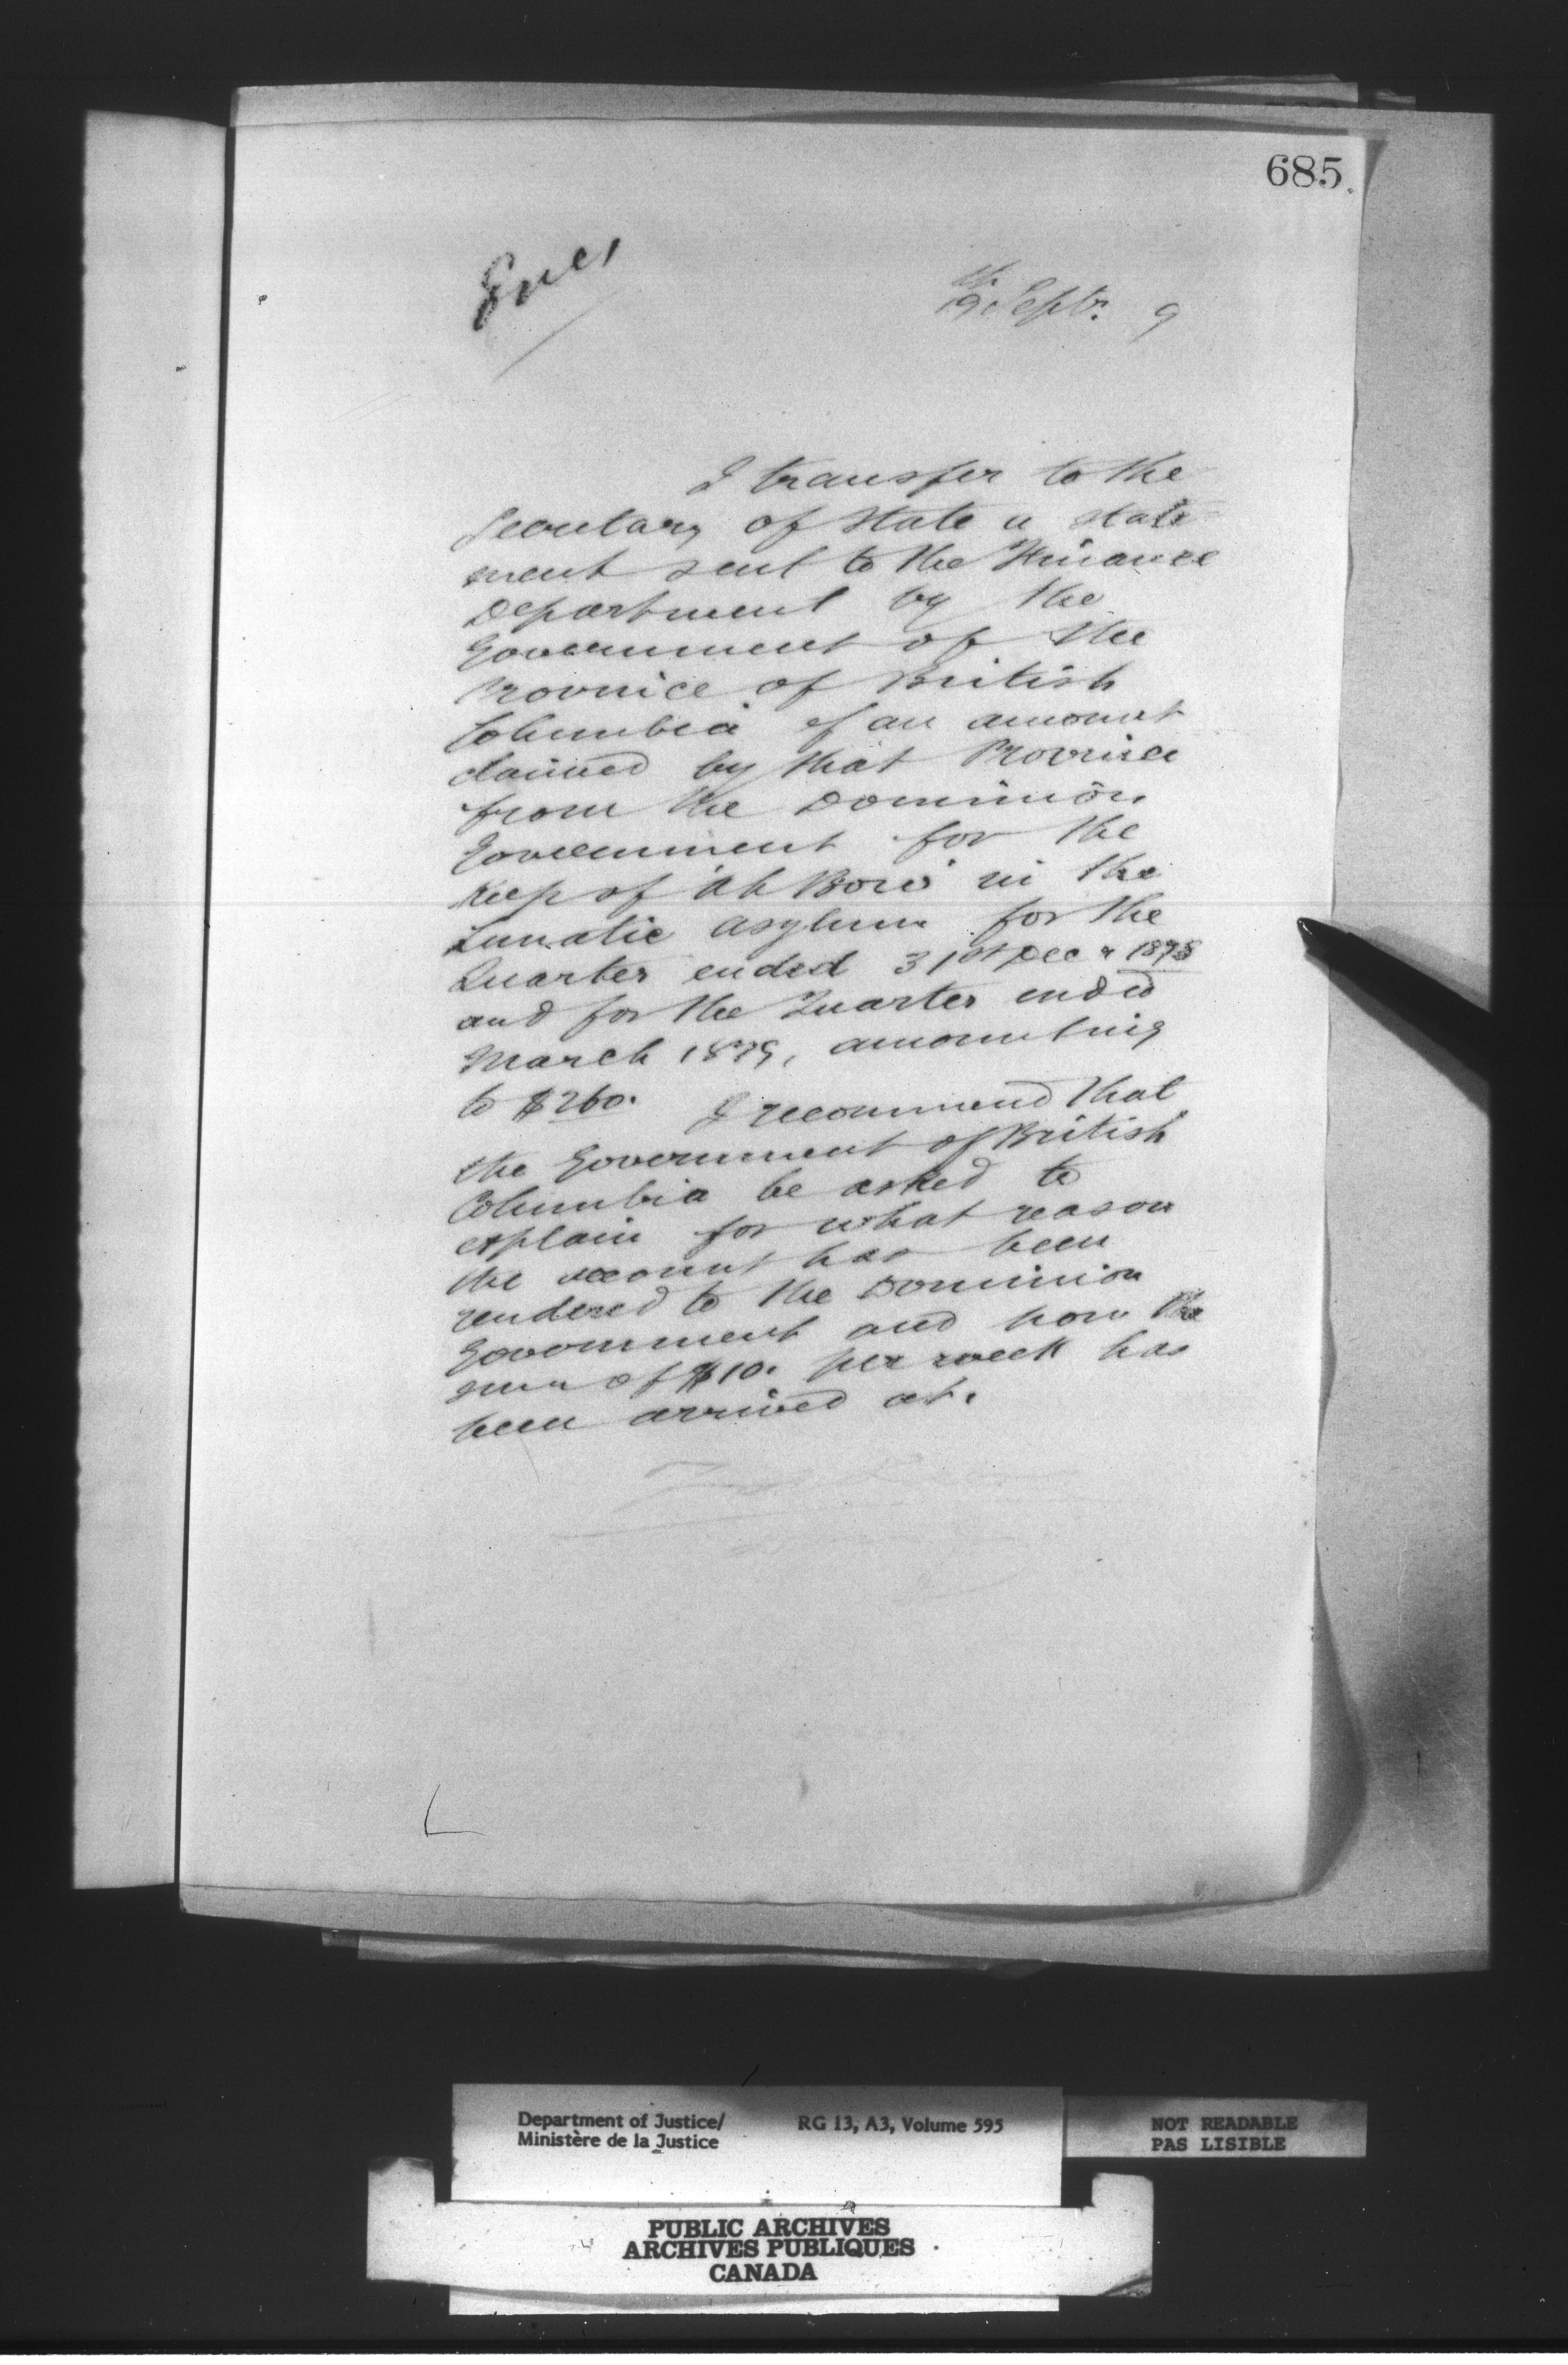 685.
Encl
19th Septr. 9
I transfer to the
Secretary of State a state-
ment sent to the Finance
Department by the
Government of the
Province of British
Columbia of an amount
claimed by that Province
from the Dominion
Government for the
keep of 'Ah Bow' in the
Lunatic Asylum for the
Quarter ended 31st Decr 1878
and for the Quarter ended
March 1879, amounting
to $260. I recommend that
the Government of British
Columbia be asked to
explain for what reason
the account has been
rendered to the Dominion
Government and how the
sum of $10. per week has
been arrived at.
Department of Justice/ RG 13, A3, Volume 595 NOT READABLE
Ministère de la Justice PAS LISIBLE
PUBLIC ARCHIVES
ARCHIVES PUBLIQUES
CANADA